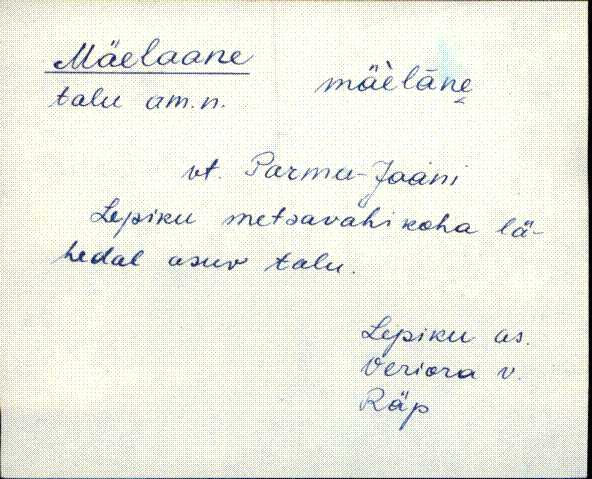 Mäelaane mäèlāne̬
talu am.n.
vt. Parmu-Jaani
Lepiku metsavahikoha lä-
hedal asuv talu.
Lepiku as.
Veriora v.
Räp